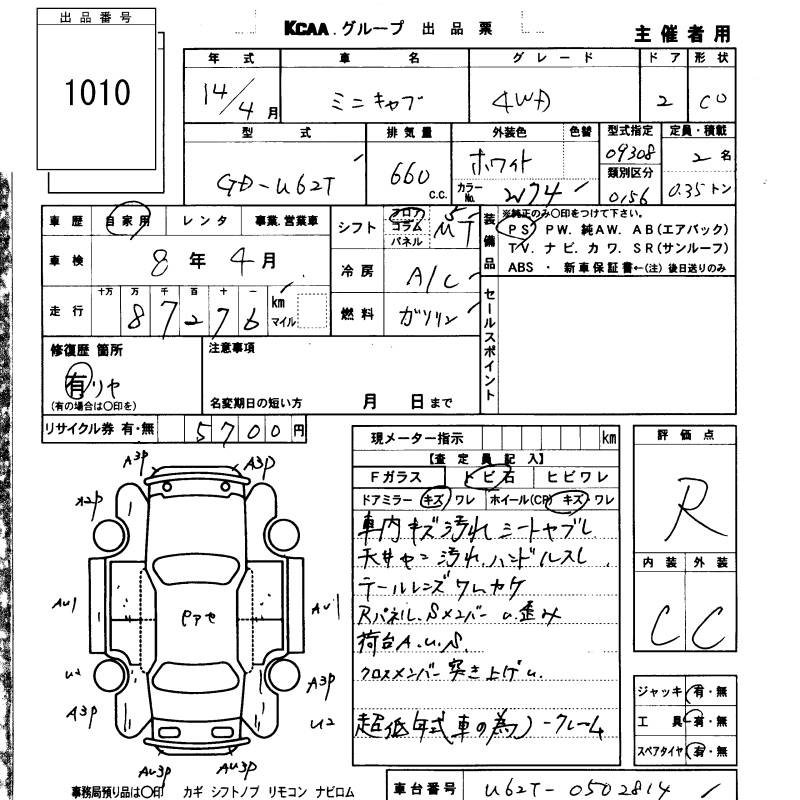 出品番号
1010
KCAA.グループ 出品票
主催者用
年式 車名 グレード ドア 形状
14/4月 ミニキャブ 4WD 2 CO
型式 排気量 外装色 色替 型式指定 定員・積載
GD-U62T 660 C.C. ホワイト 09308 2名
カラーNo. W74 類別区分 0156 0.35トン
車歴 自家用 レンタ 事業.営業車
シフト フロア コラム パネル 5 MT
車検 8年4月
冷房 A/C
走行 十万 万 千 百 十 一
87276 km マイル
燃料 ガソリン
装備品
※純正のみ〇印をつけて下さい。
PS. PW. 純AW. AB(エアバック)
TV. ナビ. カワ. SR(サンルーフ)
ABS ・ 新車保証書←(注)後日送りのみ
セールスポイント
修復歴 箇所
有 リヤ
(有の場合は〇印を)
注意事項
名変期日の短い方 月 日まで
リサイクル券 有・無 5700円
現メーター指示 km
【査定員記入】
Fガラス トビ石 ヒビワレ
ドアミラー キズ ワレ ホイール(CP) キズ・ワレ
車内キズ汚れ シートヤブレ
天井ヤニ汚れ.ハンドルスレ
テールレンズワレカケ
Rパネル.Sメンバーu.歪み
荷台A.U.S.
クロスメンバー突き上げu.
超低年式車の為ノークレーム
評価点
R
内装 外装
C C
ジャッキ 有・無
工具 有・無
スペアタイヤ 有・無
A3P A3P
A2P
AU1 AU1
U2 A3P
A3P U2
AU3P AU3P
事務局預り品は〇印 カギ シフトノブ リモコン ナビロム
車台番号 U62T-0502814